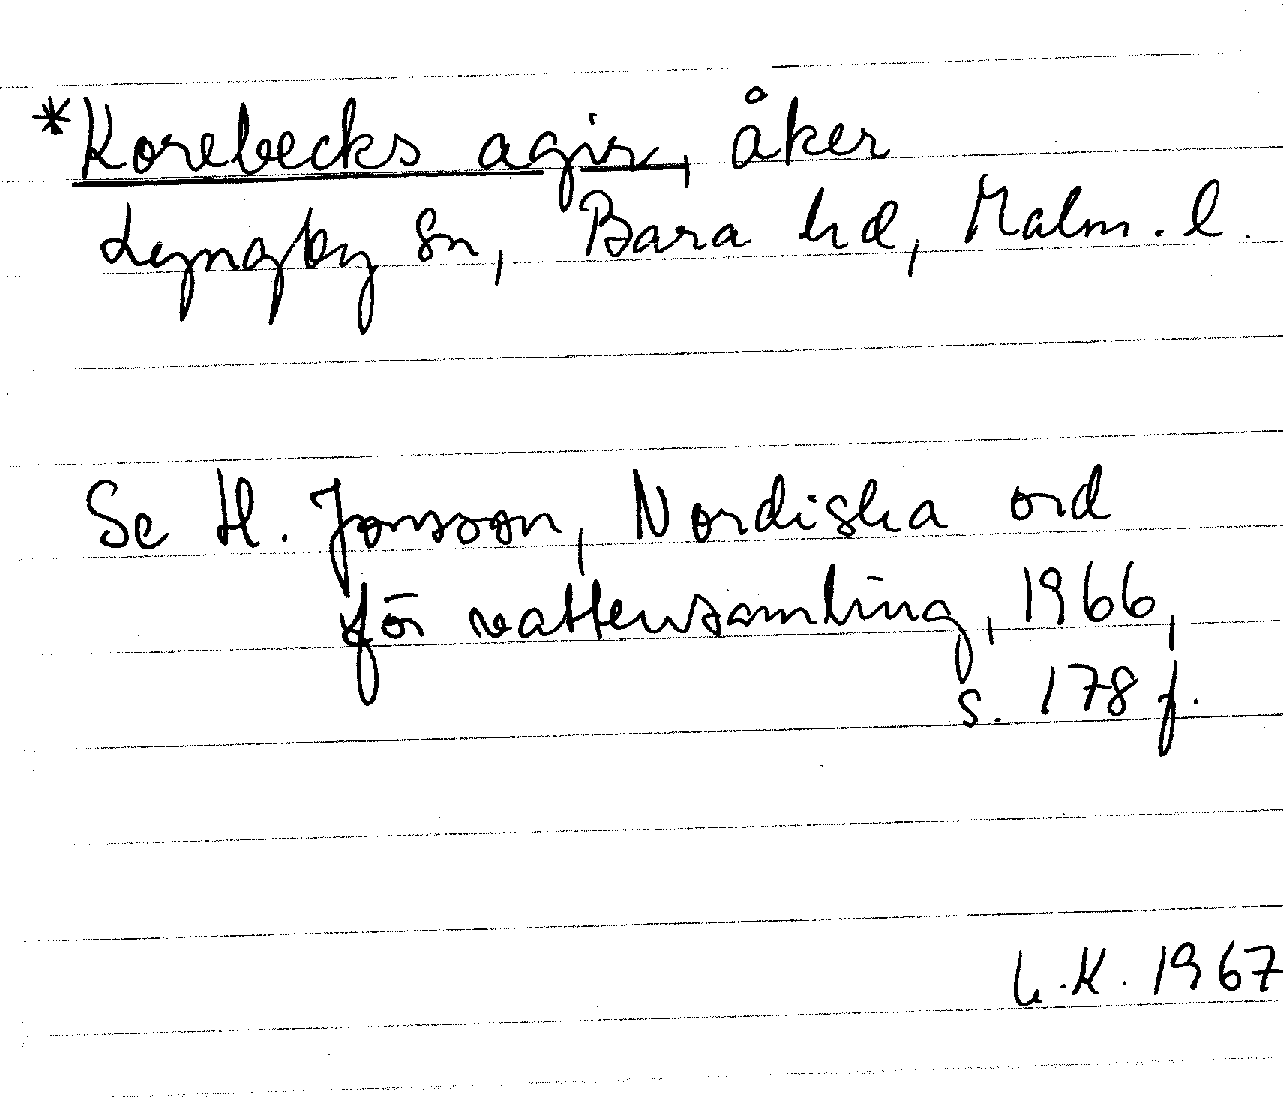 *Korebecks agir, åker
Lyngby sn, Bara hd, Malm. l.
Se H. Jonsson, Nordiska ord
för vattensamling, 1966,
s. 178 f.
L.K. 1967